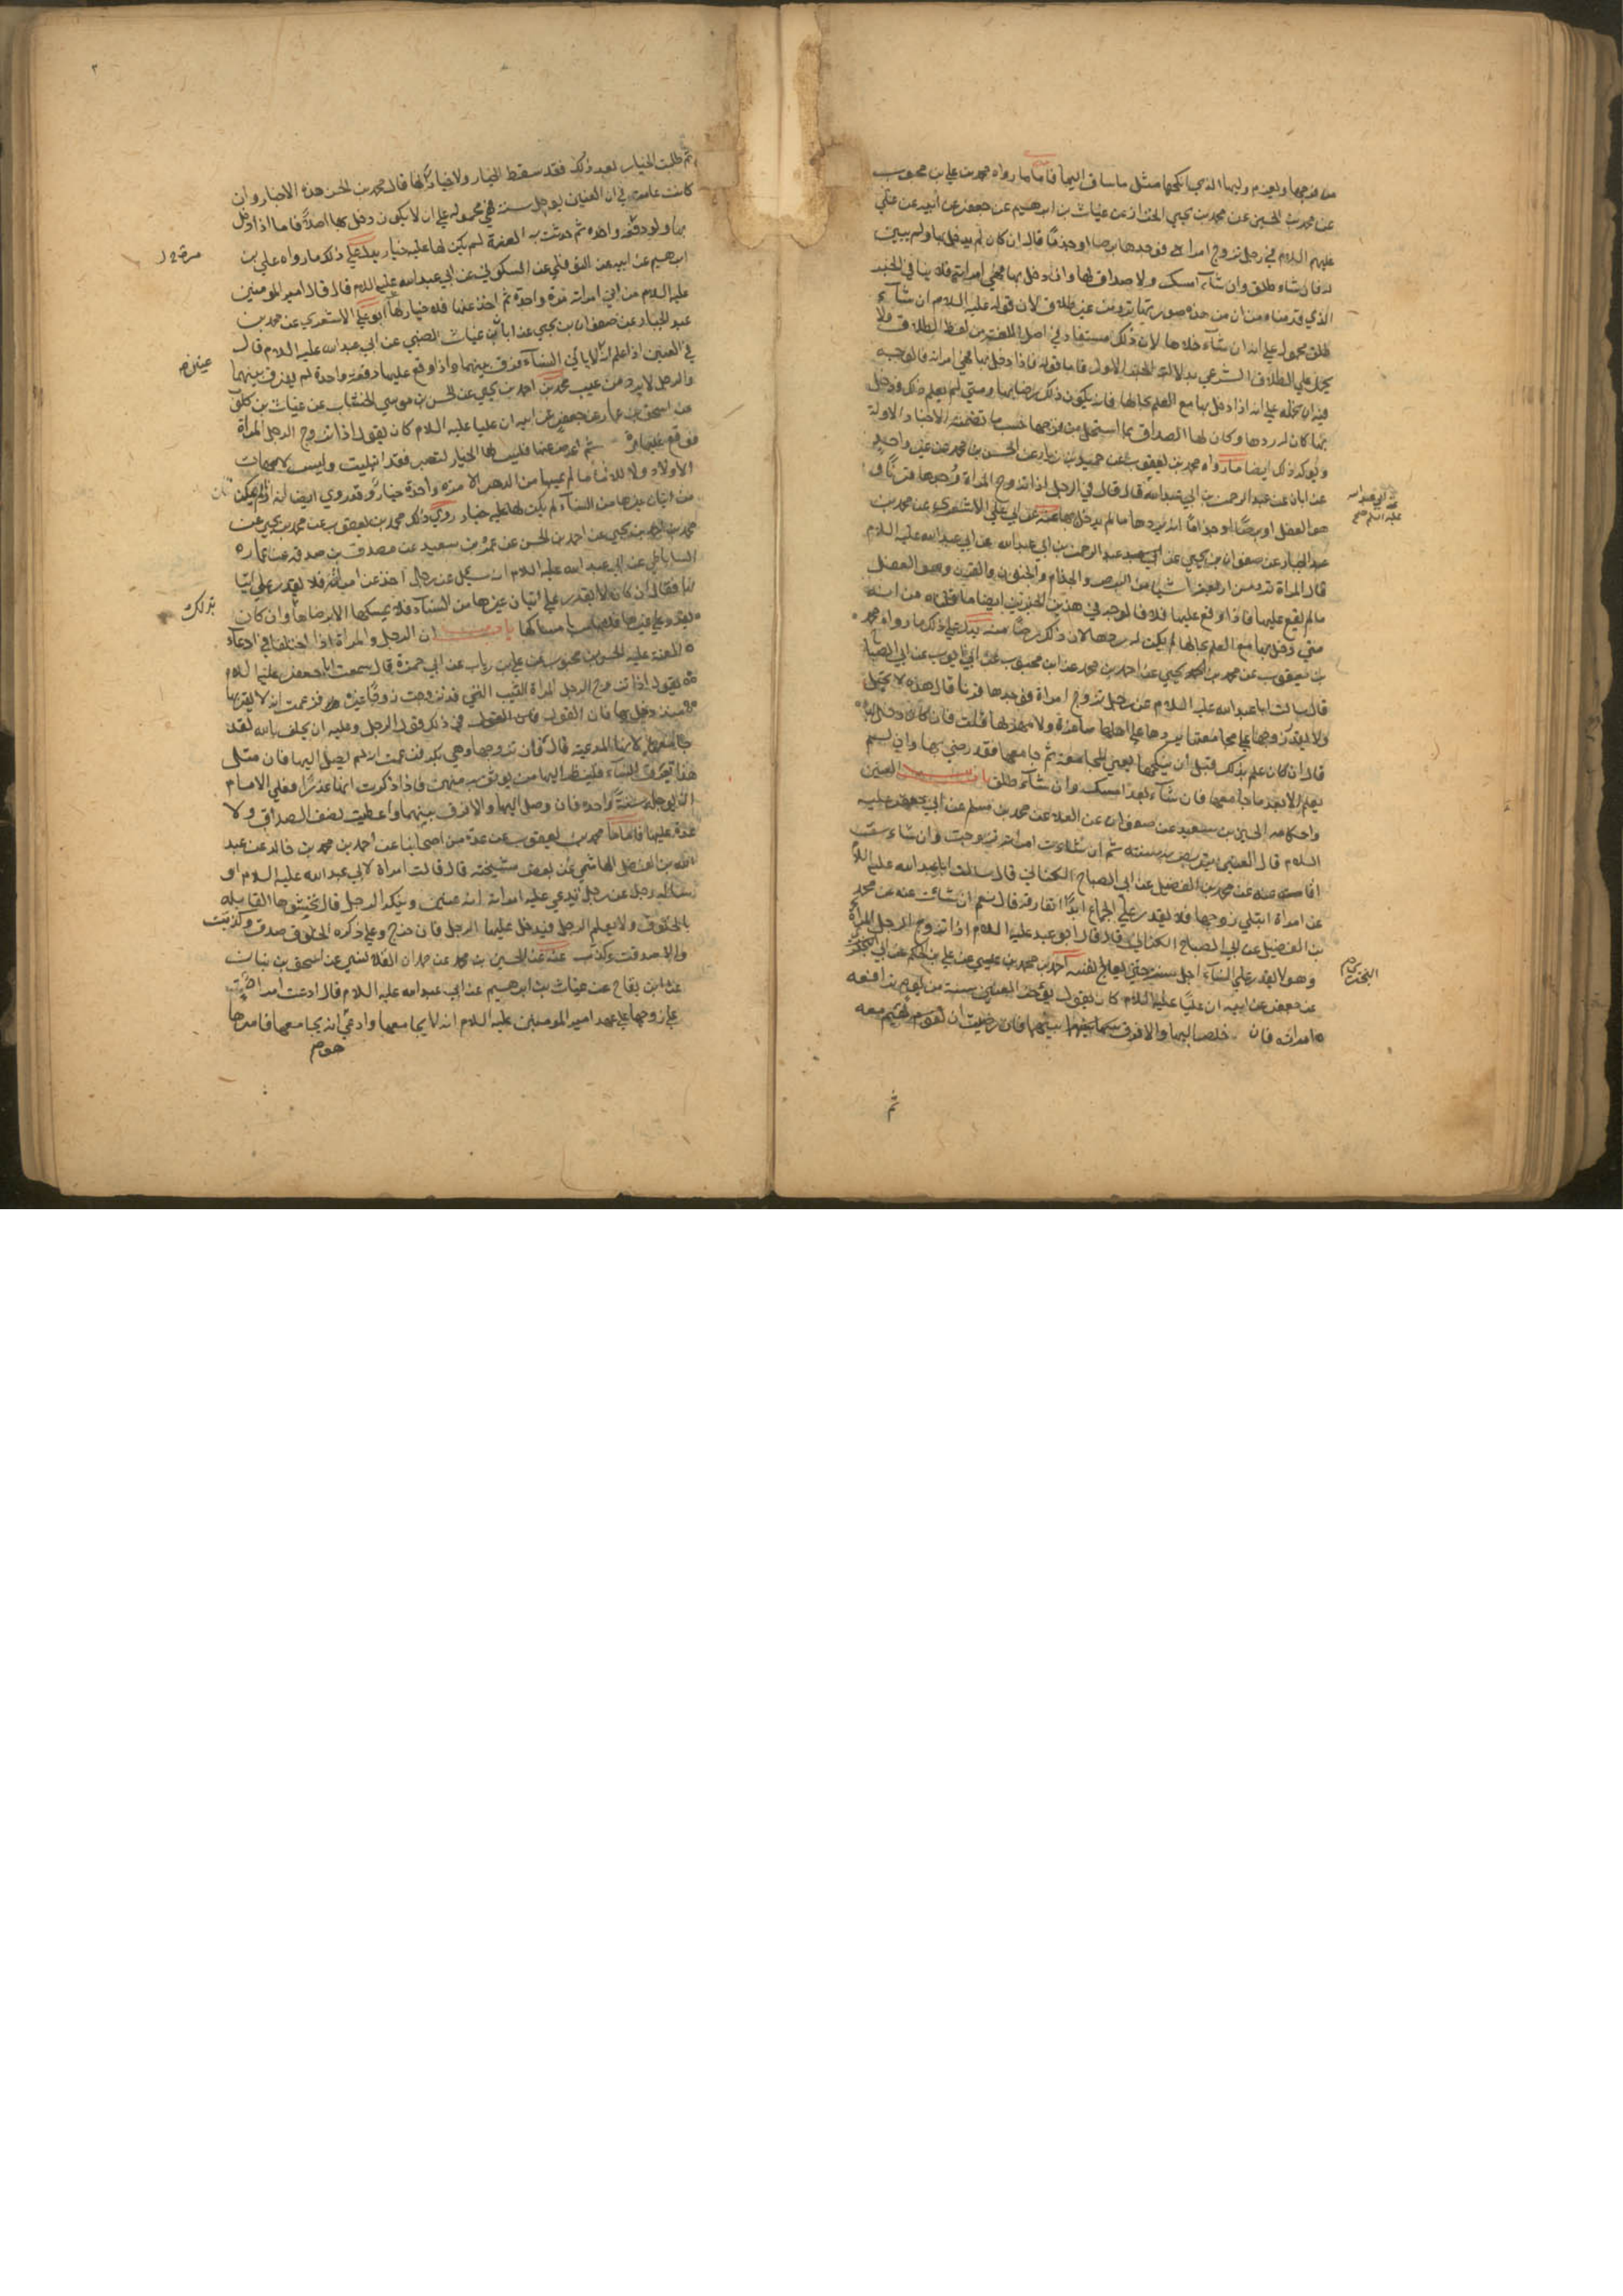 من زوجها ويغرم وليها الذي انكحها مثل ما ساق اليها فاما ما رواه محمد بن علي بن محبوب
عن محمد بن الحسين عن محمد بن يحيى الخزاز عن غياث بن ابرهيم عن جعفر عن أبيه عن علي
عليهم السلام في رجل تزوج امراة فوجدها برصا او جذما قال ان كان لم يدخل بها ولم يبين
له فان شاء طلق وان شاء امسك ولا صداق لها وان دخل بها فهي امراته فلا ينافي الخبر
الذي قدمناه من ان من هذه صورتها ترد من غير طلاق لان قوله عليه السلام ان شآء
طلق محمول على انه ان شآء خلاها لان ذلك مستفاد في اصل اللغة من لفظ الطلاق ولا
يحمل على الطلاق الشرعي بدلالة الخبر الاول فاما قوله فاذا دخل بها فهي امراته فالوجه
فيه ان نحمله على انه اذا دخل بها مع العلم بحالها فان يكون ذلك رضا بها ومتى لم يعلم ذلك ودخل
بها كان له ردها وكان لها الصداق بما استحل من فرجها حسب ما تضمنته الاخبار الاولة
ويؤكد ذلك ايضا ما رواه محمد بن يعقوب عن حميد بن زياد عن الحسن بن محمد عن غير واحد
عن ابان عن عبد الرحمن بن ابي عبد الله قال قال في الرجل اذا تزوج المراة فوجدها قرنا
هو العفل او برصا او جذاما انه يردها ما لم يدخل بها عنه عن ابي علي الاشعري عن محمد بن
عبد الجبار عن صفوان بن يحيى عن عبد الرحمن بن ابي عبد الله عن ابي عبد الله عليه السلام
قال المراة ترد من اربعة اشيا من البرص والجذام والجنون والقرن وهو العفل
ما لم يقع عليها فاذا وقع عليها فلا فالوجه في هذين الخبرين ايضا ما قلناه من انه
متى دخل بها مع العلم بحالها لم يكن له ردها لان ذلك رضا منه يدل على ذلك ما رواه محمد
بن يعقوب عن محمد بن يحيى عن احمد بن محمد عن ابن محبوب عن ابي ايوب عن ابي الصباح
قال سالت ابا عبد الله عليه السلام عن رجل تزوج امراة فوجدها قرنا قال هذه لا تحبل
ولا يقدر زوجها على مجامعتها يردها على اهلها صاغرة ولا مهر لها قلت فان كان دخل بها
قال ان كان علم بذلك قبل ان ينكحها يعني المجامعة ثم جامعها فقد رضي بها وان لم
يعلم الا بعد ما جامعها فان شآء بعد امسك وان شآء طلق باب العنين
واحكامه الحسين بن سعيد عن صفوان عن العلا عن محمد بن مسلم عن ابي جعفر عليه
السلام قال العنين يتربص به سنة ثم ان شاءت امراته تزوجت وان شاءت
اقامت عنه عن محمد بن الفضيل عن ابي الصباح الكناني قال سالت ابا عبد الله عليه السلام
عن امراة ابتلي زوجها فلا يقدر على الجماع ابدا اتفارقه قال نعم ان شاءت عنه عن محمد
بن الفضيل عن ابي الصباح الكناني قال قال ابو عبد الله عليه السلام اذا تزوج الرجل المراة
وهو لا يقدر على النسآء اجل سنة حتى يعالج نفسه احمد بن محمد بن عيسى عن علي بن الحكم عن ابي البختري
عن جعفر عن ابيه ان عليا عليه السلام كان يقول يؤخر العنين سنة من يوم ترافعه
امراته فان خلص اليها والا فرق بينهما فان رضيت ان تقيم معه
ثم
ابي عبد الله عليه السلام صح
البختري
ثم طلبت الخيار بعد ذلك فقد سقط الخيار ولا خيار لها قال محمد بن الحسن هذه الاخبار وان
كانت عامة في ان العنين يؤجل سنة فهي محمولة على ان لا يكون دخل بها اصلا فاما اذا دخل
بها ولو دفعة واحدة ثم حدثت به العنة لم يكن لها عليه خيار يدل على ذلك ما رواه علي بن
ابرهيم عن ابيه عن النوفلي عن السكوني عن ابي عبد الله عليه السلام قال قال امير المومنين
عليه السلام من اتى امراته مرة واحدة ثم اخذ عنها فلا خيار لها ابو علي الاشعري عن محمد بن
عبد الجبار عن صفوان بن يحيى عن ابان عن غياث الضبي عن ابي عبد الله عليه السلام قال
في العنين اذا علم انه لا ياتي النسآء فرق بينهما واذا وقع عليها دفعة واحدة لم يفرق بينهما
والرجل لا يرد من عيب محمد بن احمد بن يحيى عن الحسن بن موسى الخشاب عن غياث بن كلوب
عن اسحق بن عمار عن جعفر عن ابيه ان عليا عليه السلام كان يقول اذا تزوج الرجل المراة
فوقع عليها مرة ثم اعرض عنها فليس لها الخيار لتصبر فقد ابتليت وليس لامهات
الاولاد ولا للاماء ما لم يمسها من الدهر الا مرة واحدة خيار وقد روي ايضا انه اذا لم يمكن
من اتيان غيرها من النسآء لم يكن لها عليه خيار روى ذلك محمد بن يعقوب عن محمد بن يحيى عن
محمد بن احمد بن يحيى عن احمد بن الحسن عن عمرو بن سعيد عن مصدق بن صدقه عن عمار
الساباطي عن ابي عبد الله عليه السلام انه سئل عن رجل اخذ عن امراته فلا يقدر على اتيا
نها فقال ان كان لا يقدر على اتيان غيرها من النسآء فلا يمسكها الا برضاها وان كان
يقدر على غيرها فلا باس بامساكها باب ان الرجل والمراة اذا اختلفا في ادعاء
العنة عليه الحسن بن محبوب عن علي بن رياب عن ابي حمزة قال سمعت ابا جعفر عليه السلام
يقول اذا تزوج الرجل المراة الثيب التي قد تزوجت زوجا غيره فزعمت انه لا يقربها
منذ دخل بها فان القول في ذلك قول الرجل وعليه ان يحلف بالله لقد
جامعها لانها المدعيه قال فان تزوجها وهي بكر فزعمت انه لم يصل اليها فان مثل
هذا تعرف النسآء فلينظر اليها من يوثق به منهن فاذا ذكرت انها عذرا فعلى الامام
ان يوجله سنة واحده فان وصل اليها والا فرق بينهما واعطيت نصف الصداق ولا
عدة عليها فاما ما محمد بن يعقوب عن عدة من اصحابنا عن احمد بن محمد بن خالد عن عبد
الله بن الفضل الهاشمي عن بعض مشيخته قال قالت امراة لابي عبد الله عليه السلام او
ساله رجل عن رجل تدعي عليه امراته انه عنين وينكر الرجل قال تحشوها القابله
بالخلوق ولا يعلم الرجل فيدخل عليها الرجل فان خرج وعلى ذكره الخلوق صدق وكذبت
والا صدقت وكذب عنه عن الحسين بن محمد عن حمدان القلانسي عن اسحق بن بنان
عن ابن بقاح عن غياث بن ابرهيم عن ابي عبد الله عليه السلام قال ادعت امراة
على زوجها على عهد امير المومنين عليه السلام انه لا يجامعها وادعى انه يجامعها فامرها
عنين